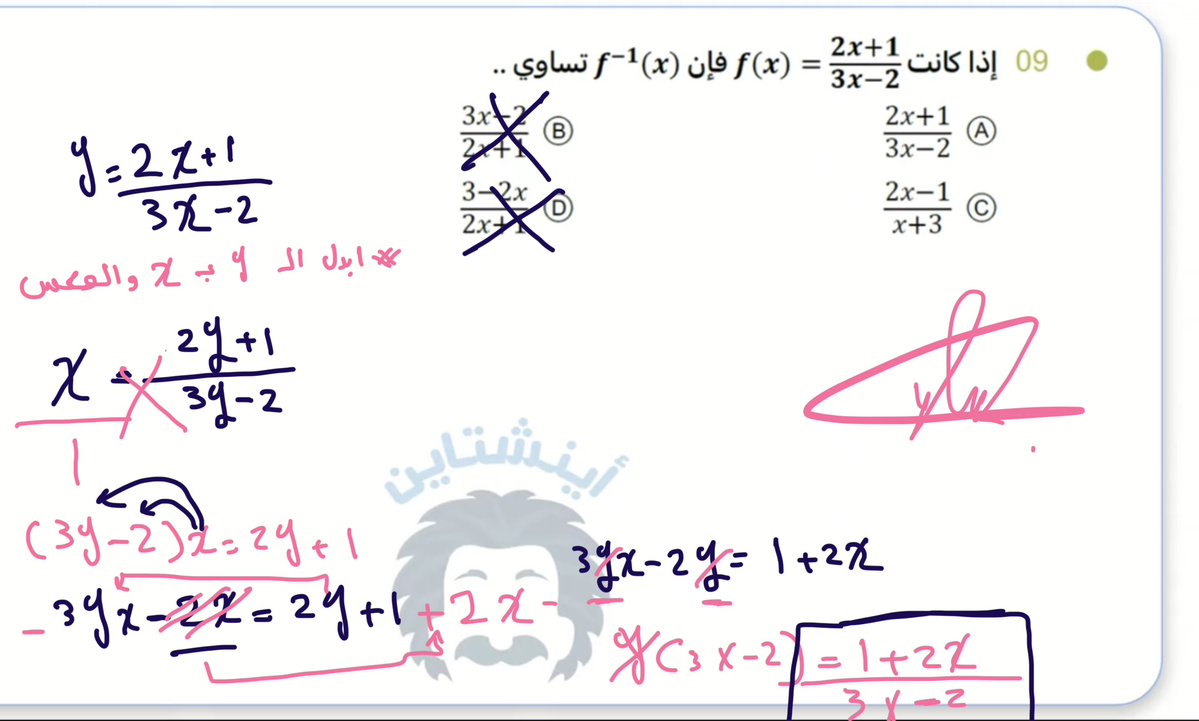 09 إذا كانت f(x) = \frac{2x+1}{3x-2} فإن f^{-1}(x) تساوي ..
A \frac{2x+1}{3x-2}
B \frac{3x-2}{2x+1}
C \frac{2x-1}{x+3}
D \frac{3-2x}{2x+1}
y = \frac{2x+1}{3x-2}
* ابدل الـ y بـ x والعكس
\frac{x}{1} = \frac{2y+1}{3y-2}
(3y-2)x = 2y+1
3yx-2x = 2y+1+2x
3yx-2y = 1+2x
y(3x-2) = \frac{1+2x}{3x-2}
أينشتاين